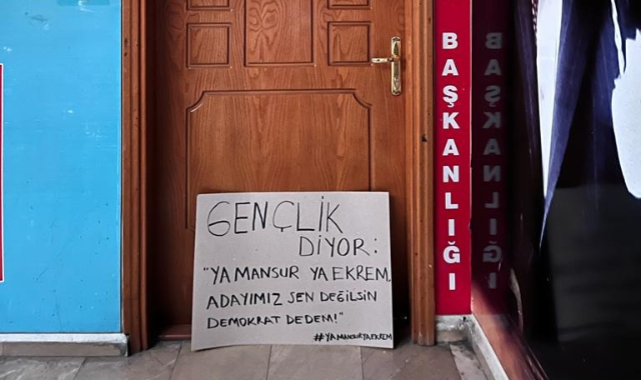 GENÇLİK
DİYOR:
"YA MANSUR YA EKREM,
ADAYIMIZ SEN DEĞİLSİN
DEMOKRAT DEDEM!"
#YAMANSURYAEKREM
BAŞKANLIĞI